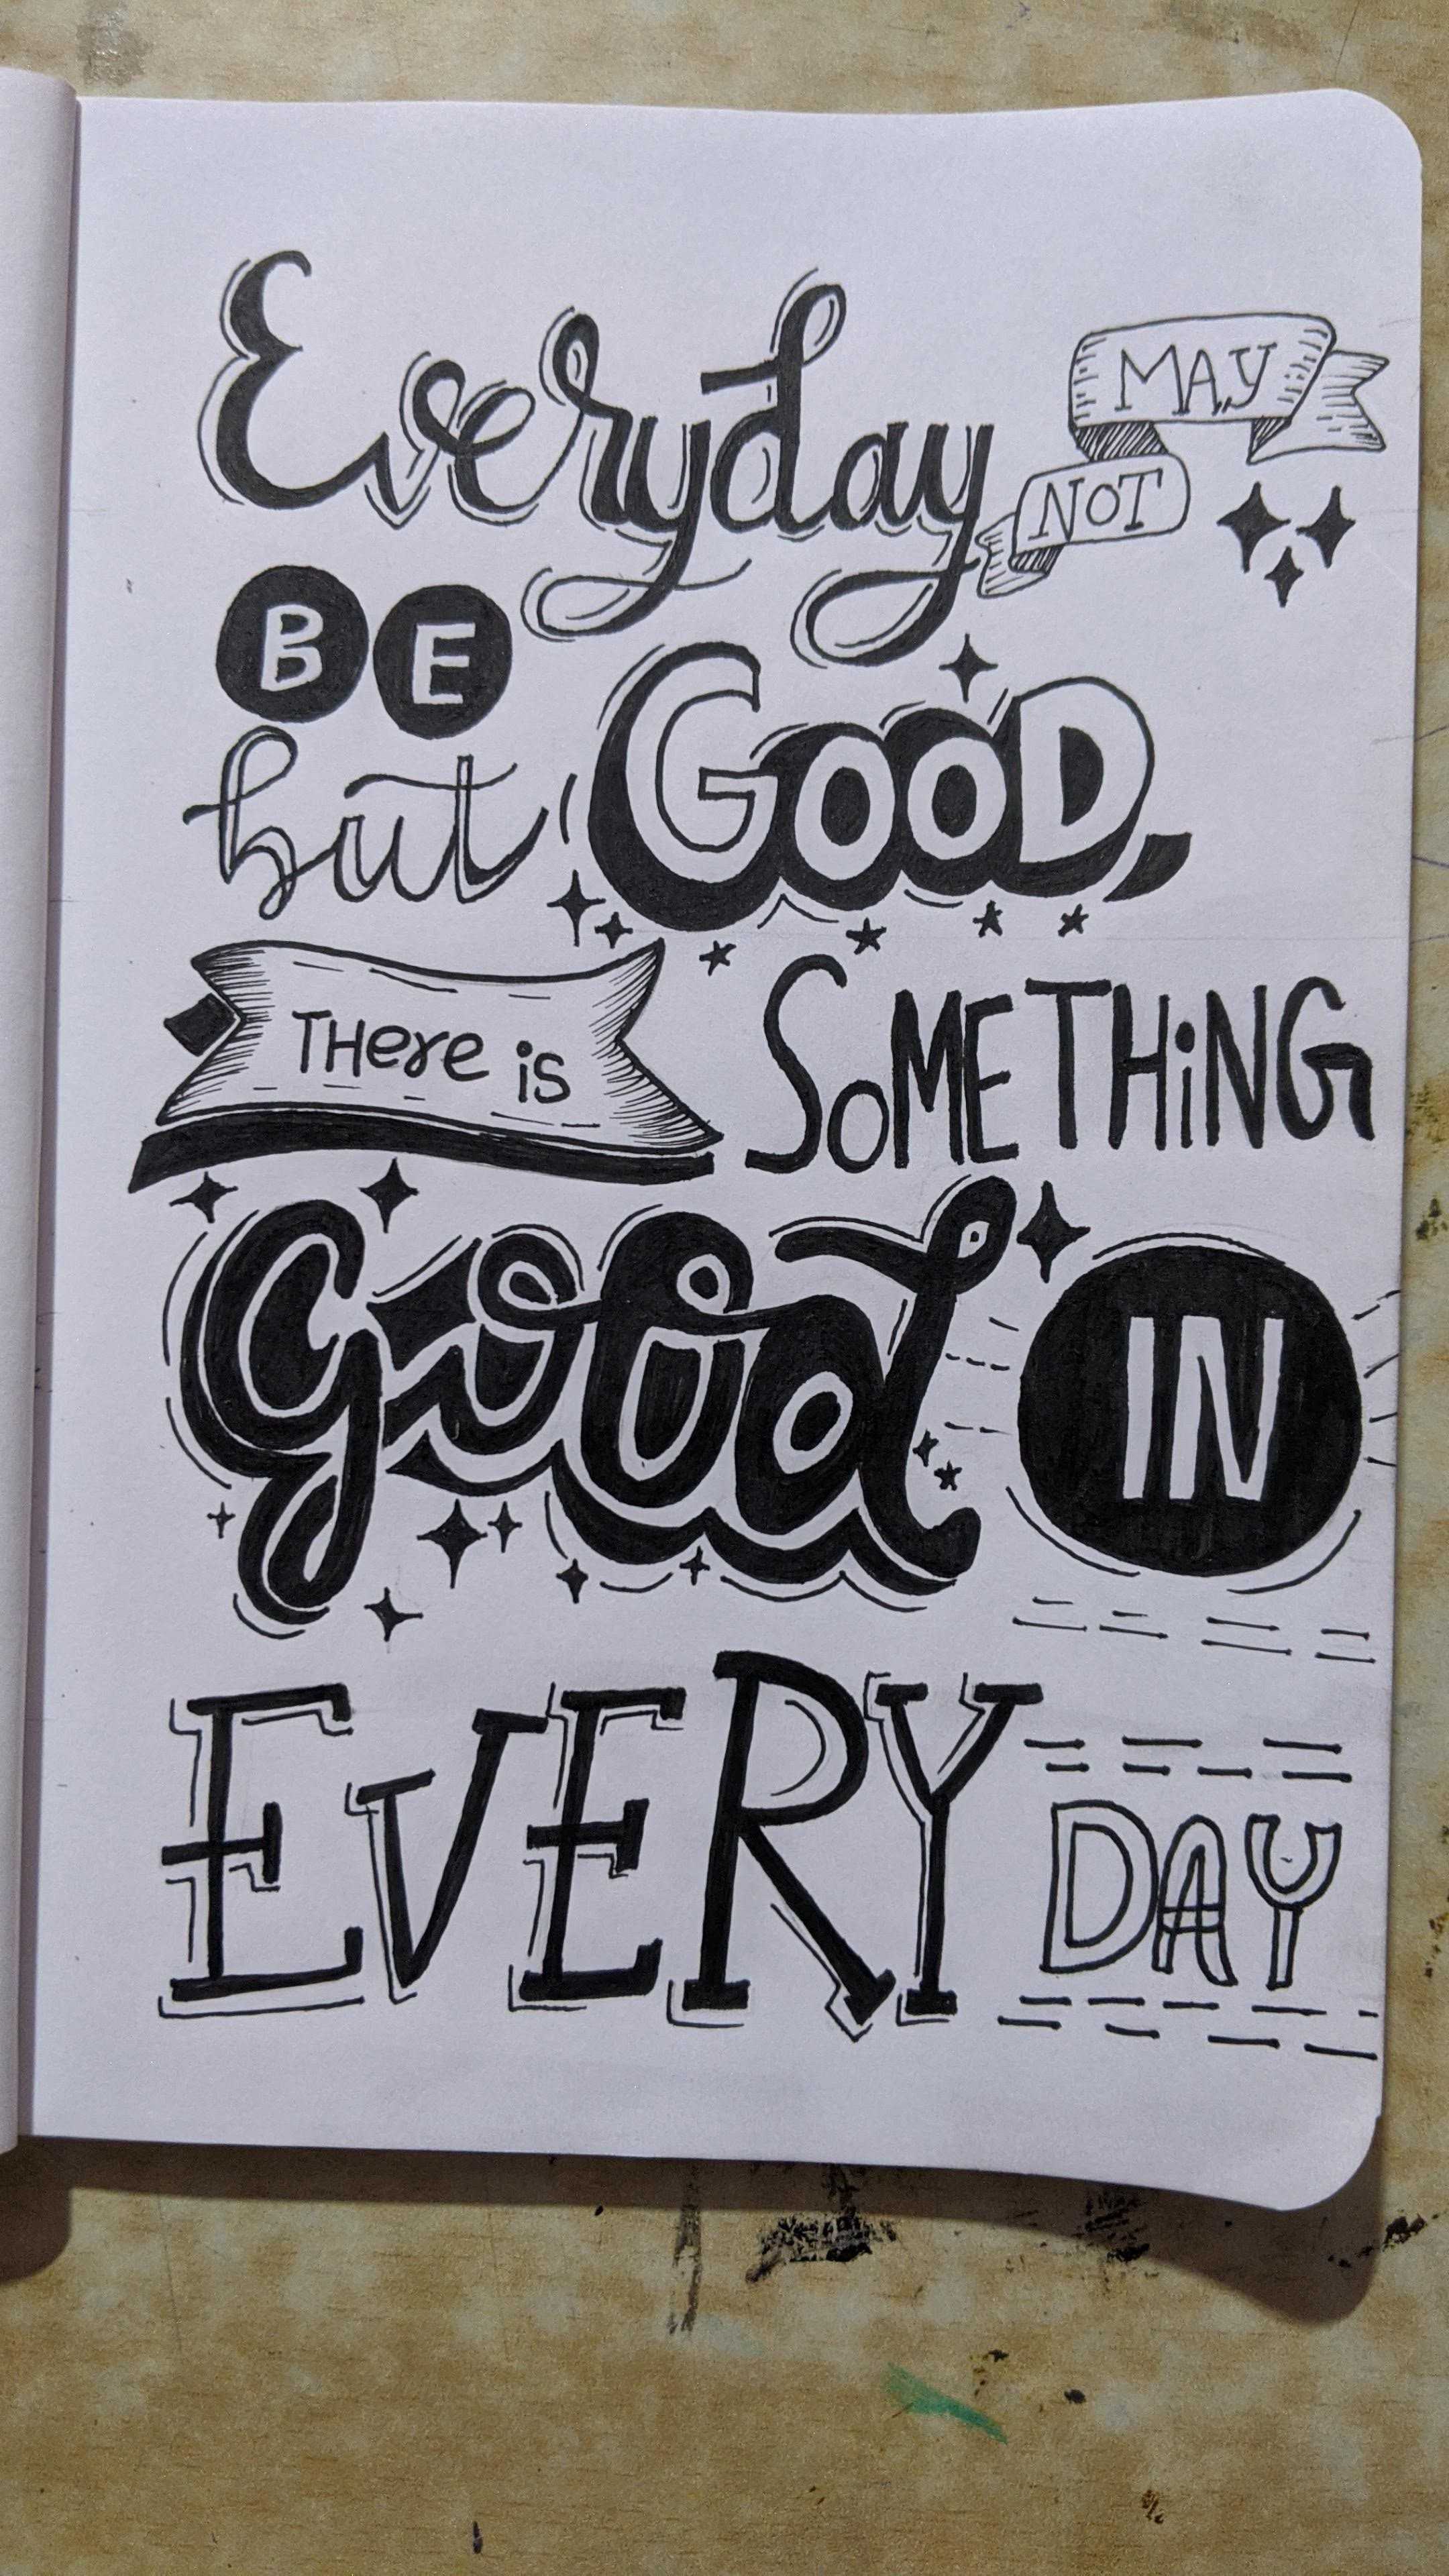 Everyday MAY
NOT
BE GOOD,
but
THere is SoMETHiNG
good IN
EVERY DAY